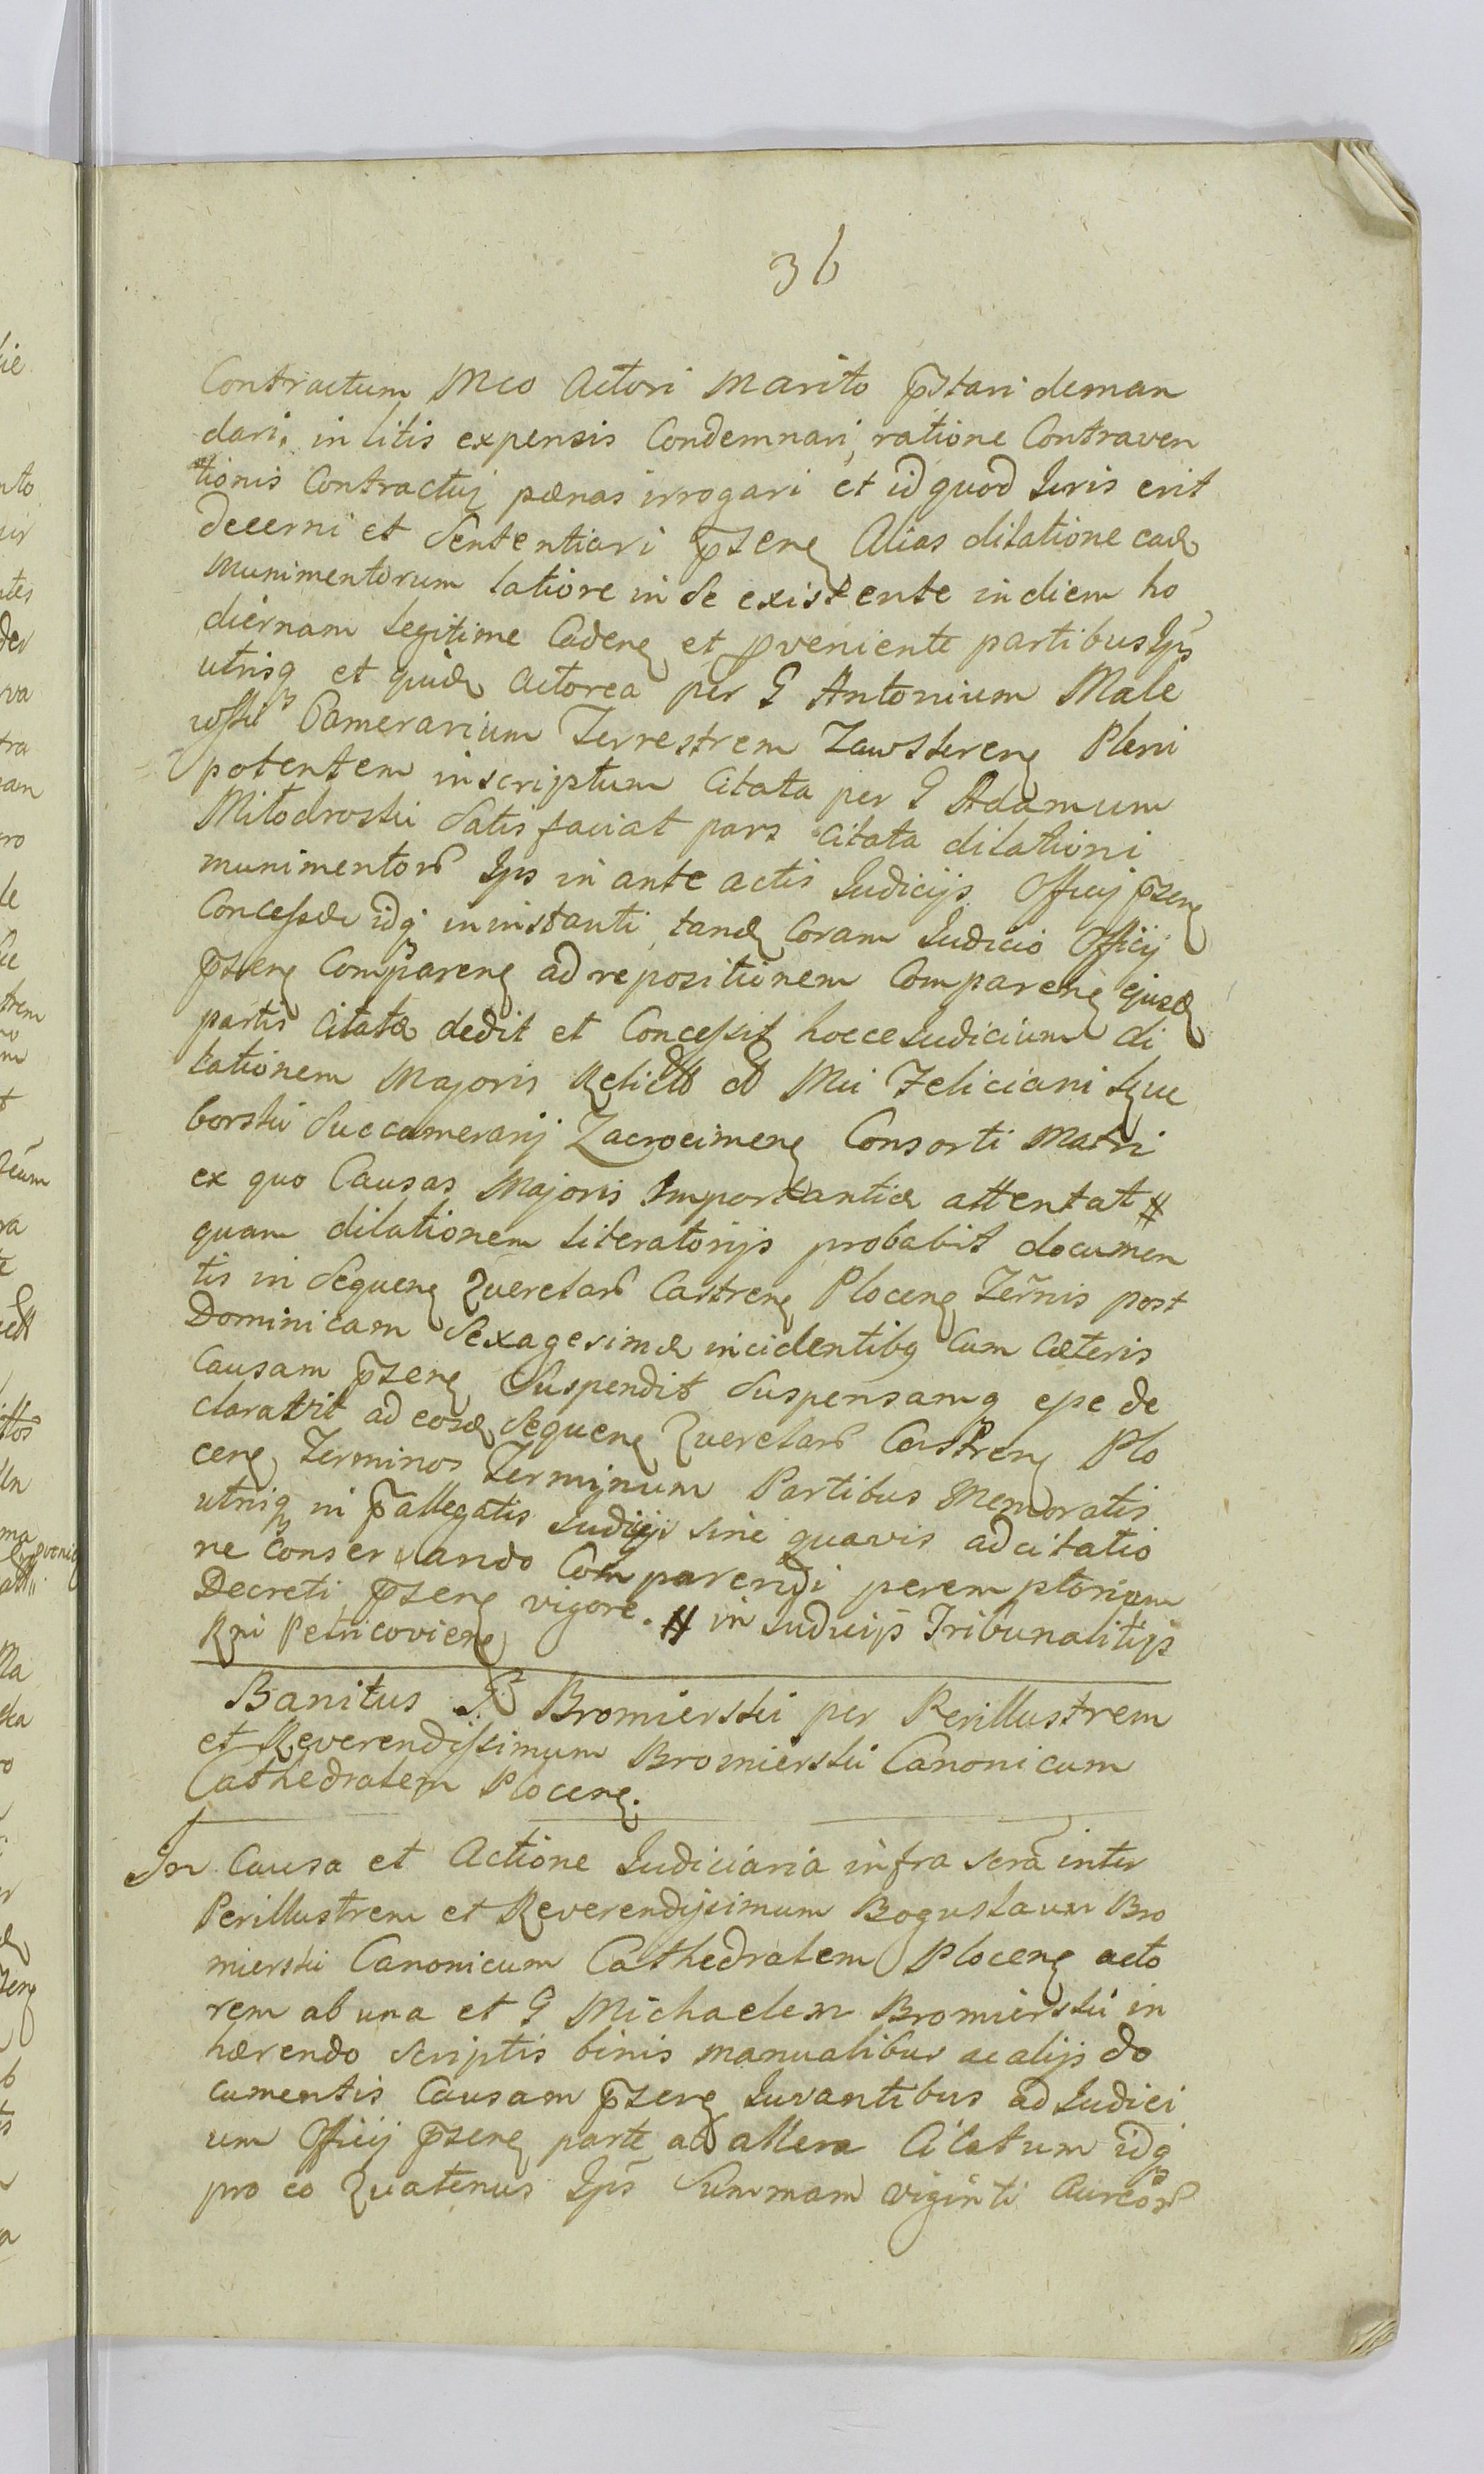 36
Contractum Mco Actori Marito p̄stari deman
dari, in litis expensis Condemnari, ratione Contraven
tionis Contractuj pænas irrogari et id quod Iuris erit
decerni et Sententiari p̄senꝭ Alias dilatione cauꝭ
Munimentorum latiore in se existente in diem ho
diernam legitime Cadenꝭ et proveniente partibus Ips̄
utrisqꝫ et quidꝭ Actorea per G Antonium Male
wski Camerarium Terrestrem Zawskrenꝭ Pleni
potentem inscriptum Citata per G Adamum
Miłodroski Satisfaciat pars Citata dilationi
munimentorꝭ Ips in ante actis Iudicijs Officij p̄senꝭ
Concessæ idqꝫ in instanti, tandꝭ Coram Iudicio Officij
p̄senꝭ Comparenꝭ ad repositionem Comparenꝭ ejusdꝭ
partis Citatæ dedit et Concessit hocce Iudicium di
lationem Majoris Relictæ Mci Feliciani
borski Succamerarij Zacrocimenꝭ Consorti Matri
ex quo Causas Majoris Importantiæ attentat #
quam dilationem literatorijs probabit documen
tis in Sequenꝭ Querelarꝭ Castrenꝭ Plocenꝭ Term̄nis post
Dominicam Sexagesimæ incidentibꝫ Cum Cæteris
Causam p̄senꝭ Suspendit Suspensamqꝫ esse de
claravit ad eosdꝭ Sequenꝭ Querelarꝭ Castrenꝭ Plo
cenꝭ Terminos Terminum Partibus Memoratis
utrisqꝫ in p̄allegatis Iudicijs sine quavis adcitatio
ne conservando Comparendi peremptorium
Decreti p̄senꝭ vigore. # in Iudicijs Tribunalitijs
Rni Petricovienꝭ
Banitus Bromierski per Perillustrem
et Reverendissimum Bromierski Canonicum
Cathedralem Plocenꝭ.
In Causa et Actione Iudiciaria infra scrā inter
Perillustrem et Reverendissimum Boguslaum Bro
mierski Canonicum Cathedralem Plocenꝭ acto
rem ab una et G Michaelem Bromierski in
hærendo scriptis binis manualibus ac alijs do
cumentis Causam p̄senꝭ Iuvantibus ad Iudici
um Officij p̄senꝭ parte ab altera Citatum idqꝫ
pro eo Quatenus Ips̄ Summam viginti Aureorꝭ